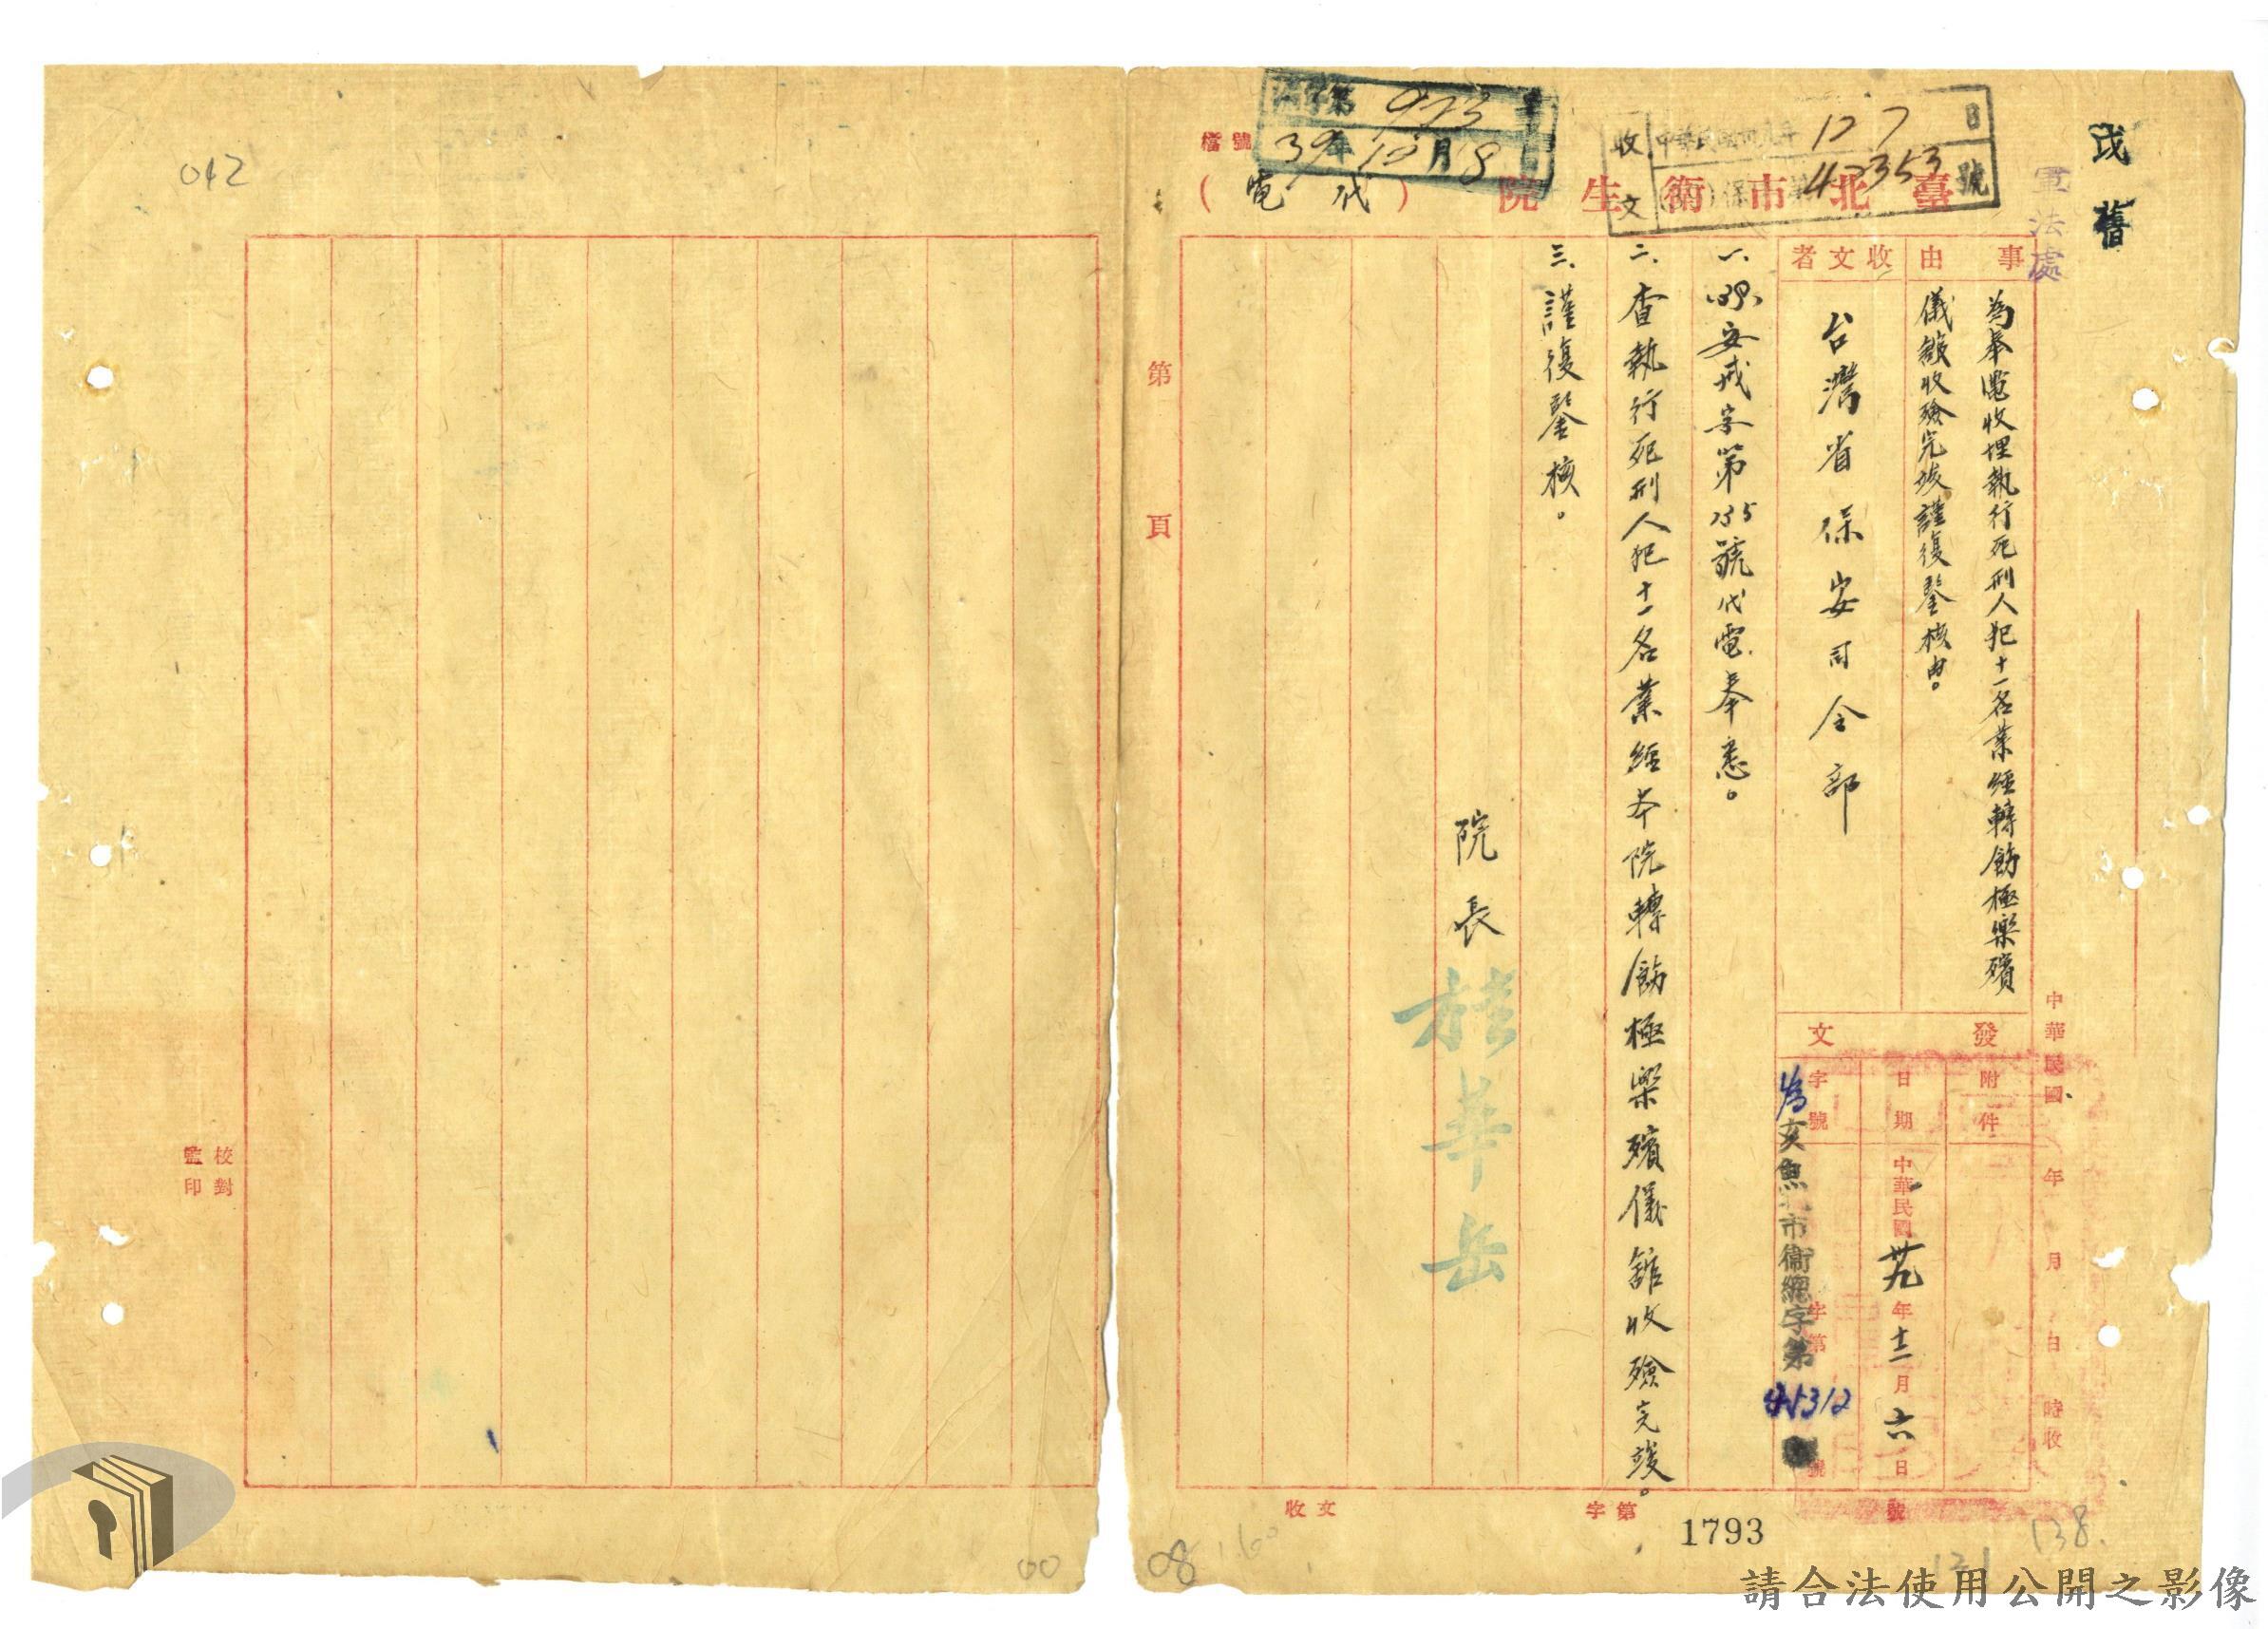 戊 舊
軍法處
收文 中華民國卅九年 12 7 日
保 第42353號
第 973 號
39年12月8日
檔號
臺北市衛生院（代電）
事由
為奉電收埋執行死刑人犯十一名業經轉飭極樂殯
儀館收殮完竣謹復鑒核由。
收文者
台灣省保安司令部
發文
附件
日期 中華民國卅九年十二月六日
字號 亥魚北市衛總字第 號
中華民國 年 月 日 時收
一、(39)安戒字第 號代電奉悉。
二、查執行死刑人犯十一名業經本院轉飭極樂殯儀館收殮完竣。
三、謹復鑒核。
院長 華岳
第 頁
收文 字第 號
1793
138.
131
08
1.60
00
042
校對
監印
請合法使用公開之影像